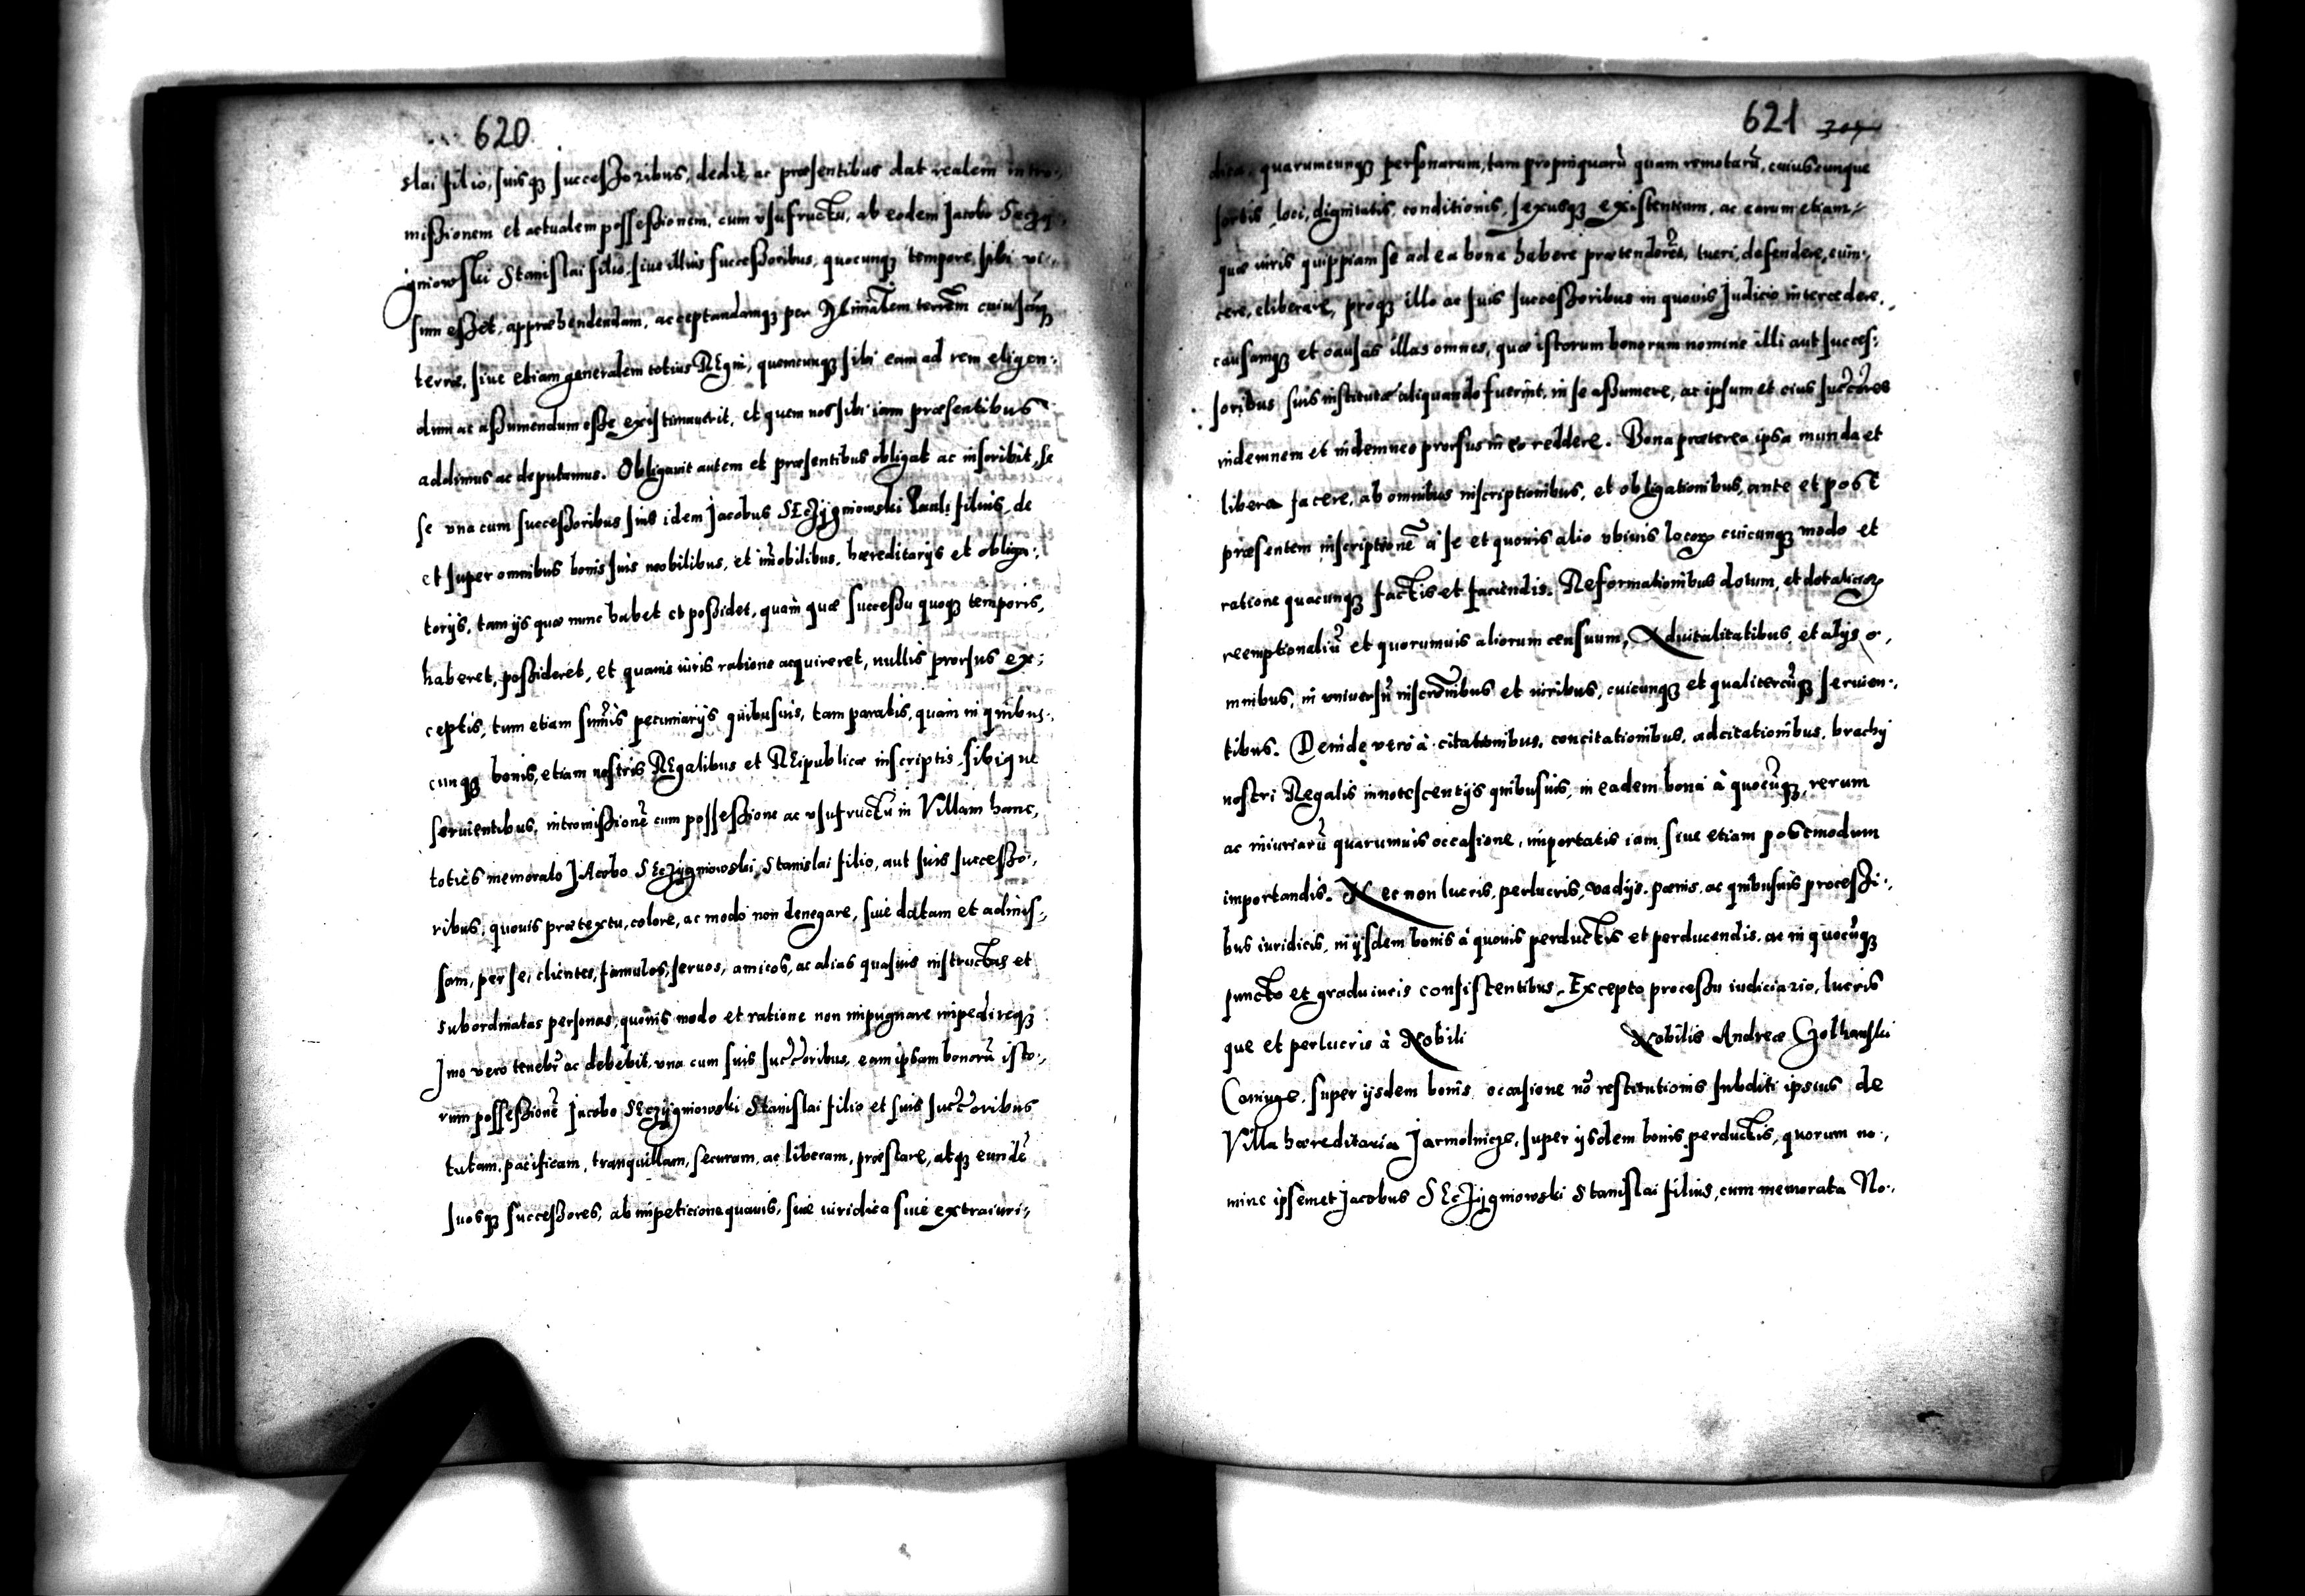 620
slai filio, suisq3 successoribus, dedit, ac præsentibus dat realem intro-
missionem et actualem possessionem, cum vsufructu, ab eodem JacoboSeczy
gniowski Stanislai filio, siue illius successoribus, quocunq3 tempore, sibi vi-
sum esset, appræhendendam, acceptandamq3 per Mīnrālem terrēm cuiuscūq3
terræ, siue etiam generalem totius REgni, quemcunq3 sibi eam ad rem eligen-
dum ac assumendum esse existimauerit, et quem nos sibi iam præsentibus
addimus ac deputamus. Obligauit autem et præsentibus obligat ac inscribit, se
se vna cum successoribus suis idem Jacobus SEczygniowski Pauli filius, de
et super omnibus bonis suis mobilibus, et im̄obilibus, hæreditarijs et obliga-
torijs, tam ijs quæ nunc habet et possidet, quàm quæ successu quoq3 temporis,
haberet, possideret, et quauis iuris ratione acquireret, nullis prorsus ex-
ceptis, tum etiam sum̄is pecuniarijs quibusuis, tam paratis, quàm in quibus-
cunq3 bonis, etiam nostris REgalibus et REipublicæ inscriptis, sibique
seruientibus, intromissionē cum possessione ac vsufructu in Villam hanc,
toties memorato JAcobo SEczygniowski, Stanislai filio, aut suis successo-
ribus, quouis prætextu, colore, ac modo non denegare, siue datam et admis-
sam, per se, clientes, famulos, seruos, amicos, ac alias quasuis instructas et
subordinatas personas, quouis modo et ratione non impugnare impedireq3
Jmo vero teneb̄r ac debebit, vna cum suis succ̄oribus, eam ipsam bonorū isto-
rum possessionē Jacobo SEczygniowski Stanislai filio et suis succ̄oribus
tutam, pacificam, tranquillam, securam, ac liberam, præstare, atq3 eundē
suosq3 successores, ab impeticione quauis, siue iuridica siue extraiuri-
621
dica, quarumcunq3 personarum, tam propinquarū quam remotarū, cuiuscunque
sortis, loci, dignitatis, conditionis, sexusq3 existentium, ac earum etiam,
quæ iuris quippiam se ad ea bona habere prætenderēt, tueri, defendere, euin-
cere, eliberare, proq3 illo ac suis successoribus in quouis Judicio intercedere,
causamq3 et causas illas omnes, quæ istorum bonorum nomine illi aut succes-
soribus suis institutæ aliquando fuerint, in se assumere, ac ipsum et eius succ̄ores
indemnem et indemnes prorsus in eo reddere. Bona præterea ipsa munda et
libera facere, ab omnibus inscriptionibus, et obligationibus, ante et post
præsentem inscriptionē à se et quouis alio vbiuis locorum cuicunq3 modo et
ratione quacunq3 factis et faciendis. Reformationibus dotum, et dotaliciorum
reemptionaliū et quorumuis aliorum censuum, Aduitalitatibus, et alijs o-
mnibus, in vniuersū inscr̄onibus et iuribus, cuicunq3 et qualitercūq3 seruien-
tibus. Deinde verò à citationibus, concitationibus, adcitationibus, brachij
nostri Regalis innotescentijs quibusuis, in eadem bona à quocūq3, rerum
ac iniuriarū quarumuis occasione, importatis iam, siue etiam postmodum
importandis. Nec non lucris, perlucris, vadijs, pœnis, ac quibusuis processi-
bus iuridicis, in ijsdem bonis à quouis perductis et perducendis, ac in quocūq3
puncto et gradu iuris consistentibus, Excepto processu iudiciario, lucris
que et perlucris à Nobili Nobilis Andreæ Golhanski
Coniuge, super ijsdem bonis occasione nō restitutionis subditi ipsius de
Villa hæreditaria Jarmolnicze, super ijsdem bonis perductis, quorum no-
mine ipsemet Jacobus SEczygniowski Stanislai filius, cum memorata No-